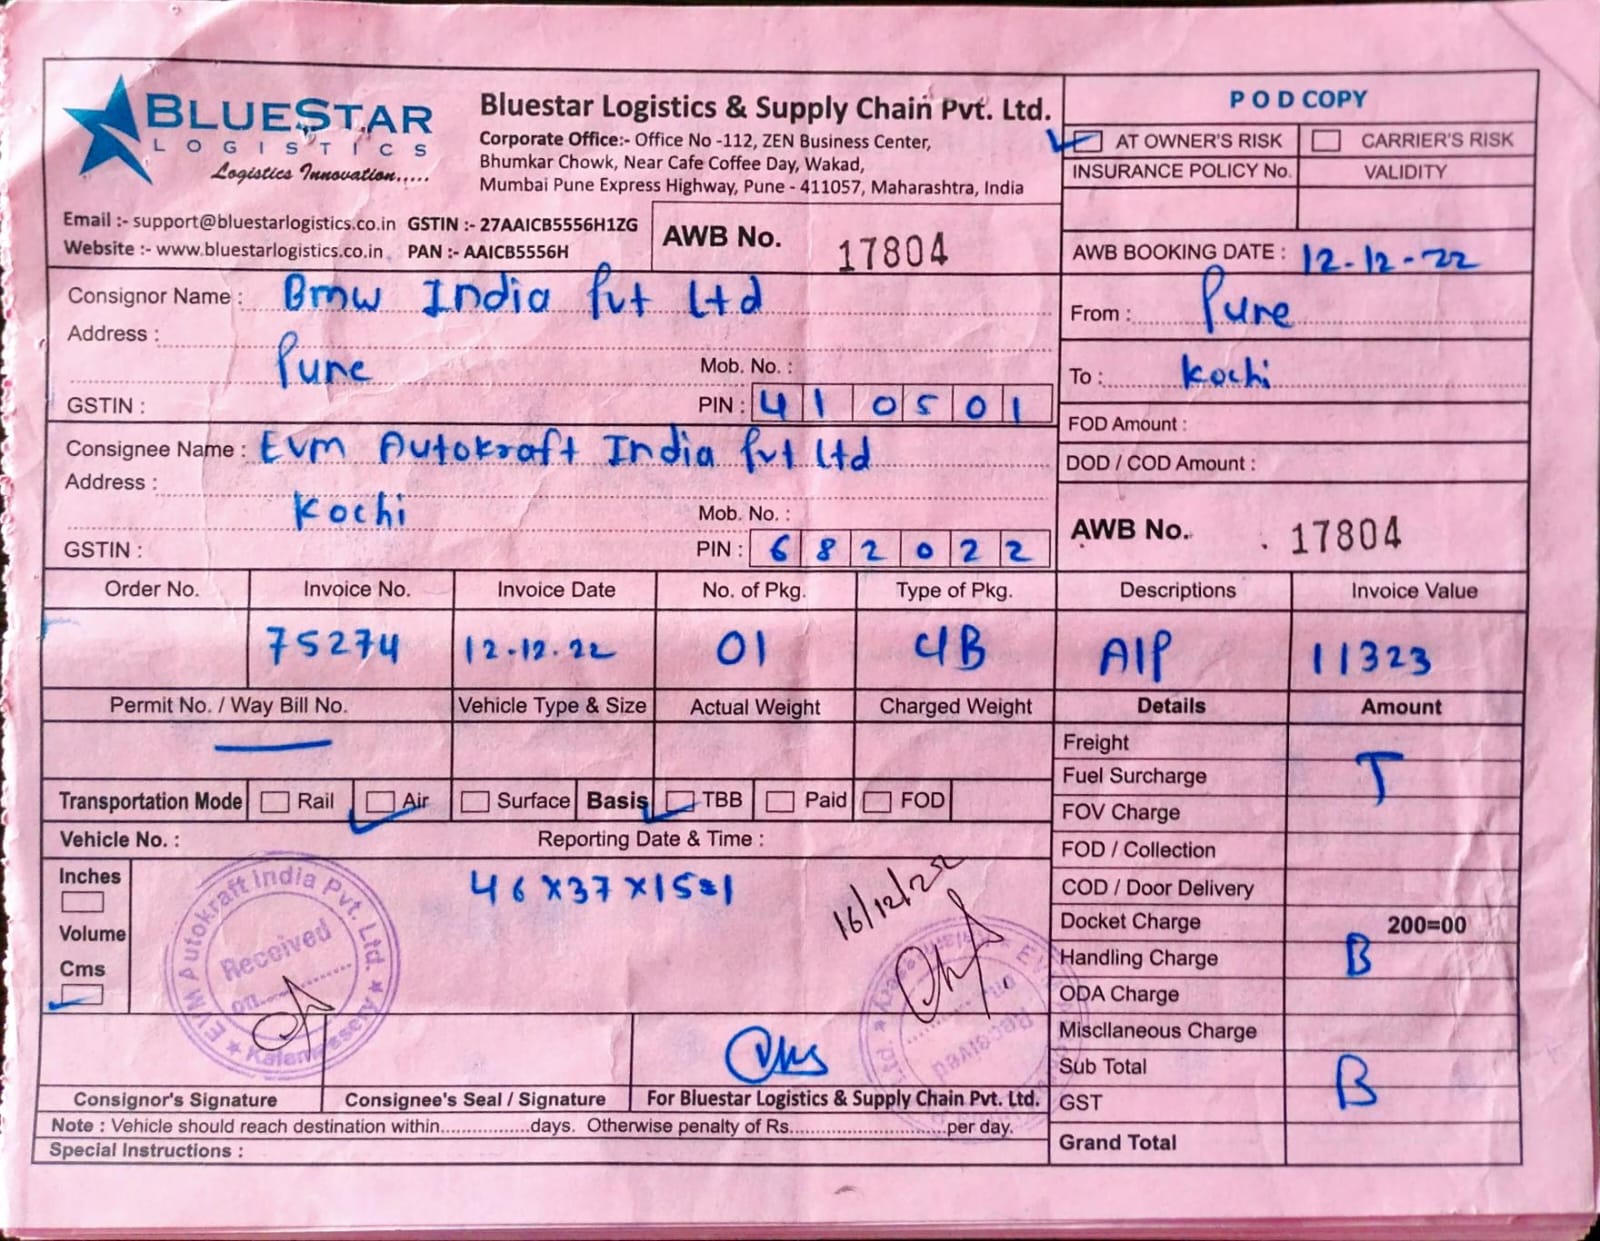 BLUESTAR
LOGISTICS
Logistics Innovation.....
Bluestar Logistics & Supply Chain Pvt. Ltd.
Corporate Office:- Office No -112, ZEN Business Center,
Bhumkar Chowk, Near Cafe Coffee Day, Wakad,
Mumbai Pune Express Highway, Pune - 411057, Maharashtra, India
Email :- support@bluestarlogistics.co.in GSTIN :- 27AAICB5556H1ZG
Website :- www.bluestarlogistics.co.in PAN :- AAICB5556H
AWB No. 17804
POD COPY
AT OWNER'S RISK CARRIER'S RISK
INSURANCE POLICY No. VALIDITY
AWB BOOKING DATE : 12-12-22
From : Pune
To : Kochi
FOD Amount :
DOD / COD Amount :
AWB No. 17804
Consignor Name : Bmw India Pvt Ltd
Address :
Pune Mob. No. :
GSTIN : PIN : 410501
Consignee Name : Evm Autokraft India Pvt Ltd
Address :
Kochi Mob. No. :
GSTIN : PIN : 682022
Order No. Invoice No. Invoice Date No. of Pkg. Type of Pkg. Descriptions Invoice Value
75274 12-12-22 01 CB AIP 11323
Permit No. / Way Bill No. Vehicle Type & Size Actual Weight Charged Weight Details Amount
Freight
Fuel Surcharge T
FOV Charge
FOD / Collection
COD / Door Delivery
Docket Charge 200=00
Handling Charge B
ODA Charge
Miscllaneous Charge
Sub Total B
GST
Grand Total
Transportation Mode Rail Air Surface Basis TBB Paid FOD
Vehicle No. : Reporting Date & Time :
Inches
Volume
Cms
46x37x15=1
16/12/22
EVM Autokraft India Pvt. Ltd.
Received
on
Kalamassery
Received
on
Consignor's Signature Consignee's Seal / Signature For Bluestar Logistics & Supply Chain Pvt. Ltd.
Note : Vehicle should reach destination within...............days. Otherwise penalty of Rs............................per day.
Special Instructions :